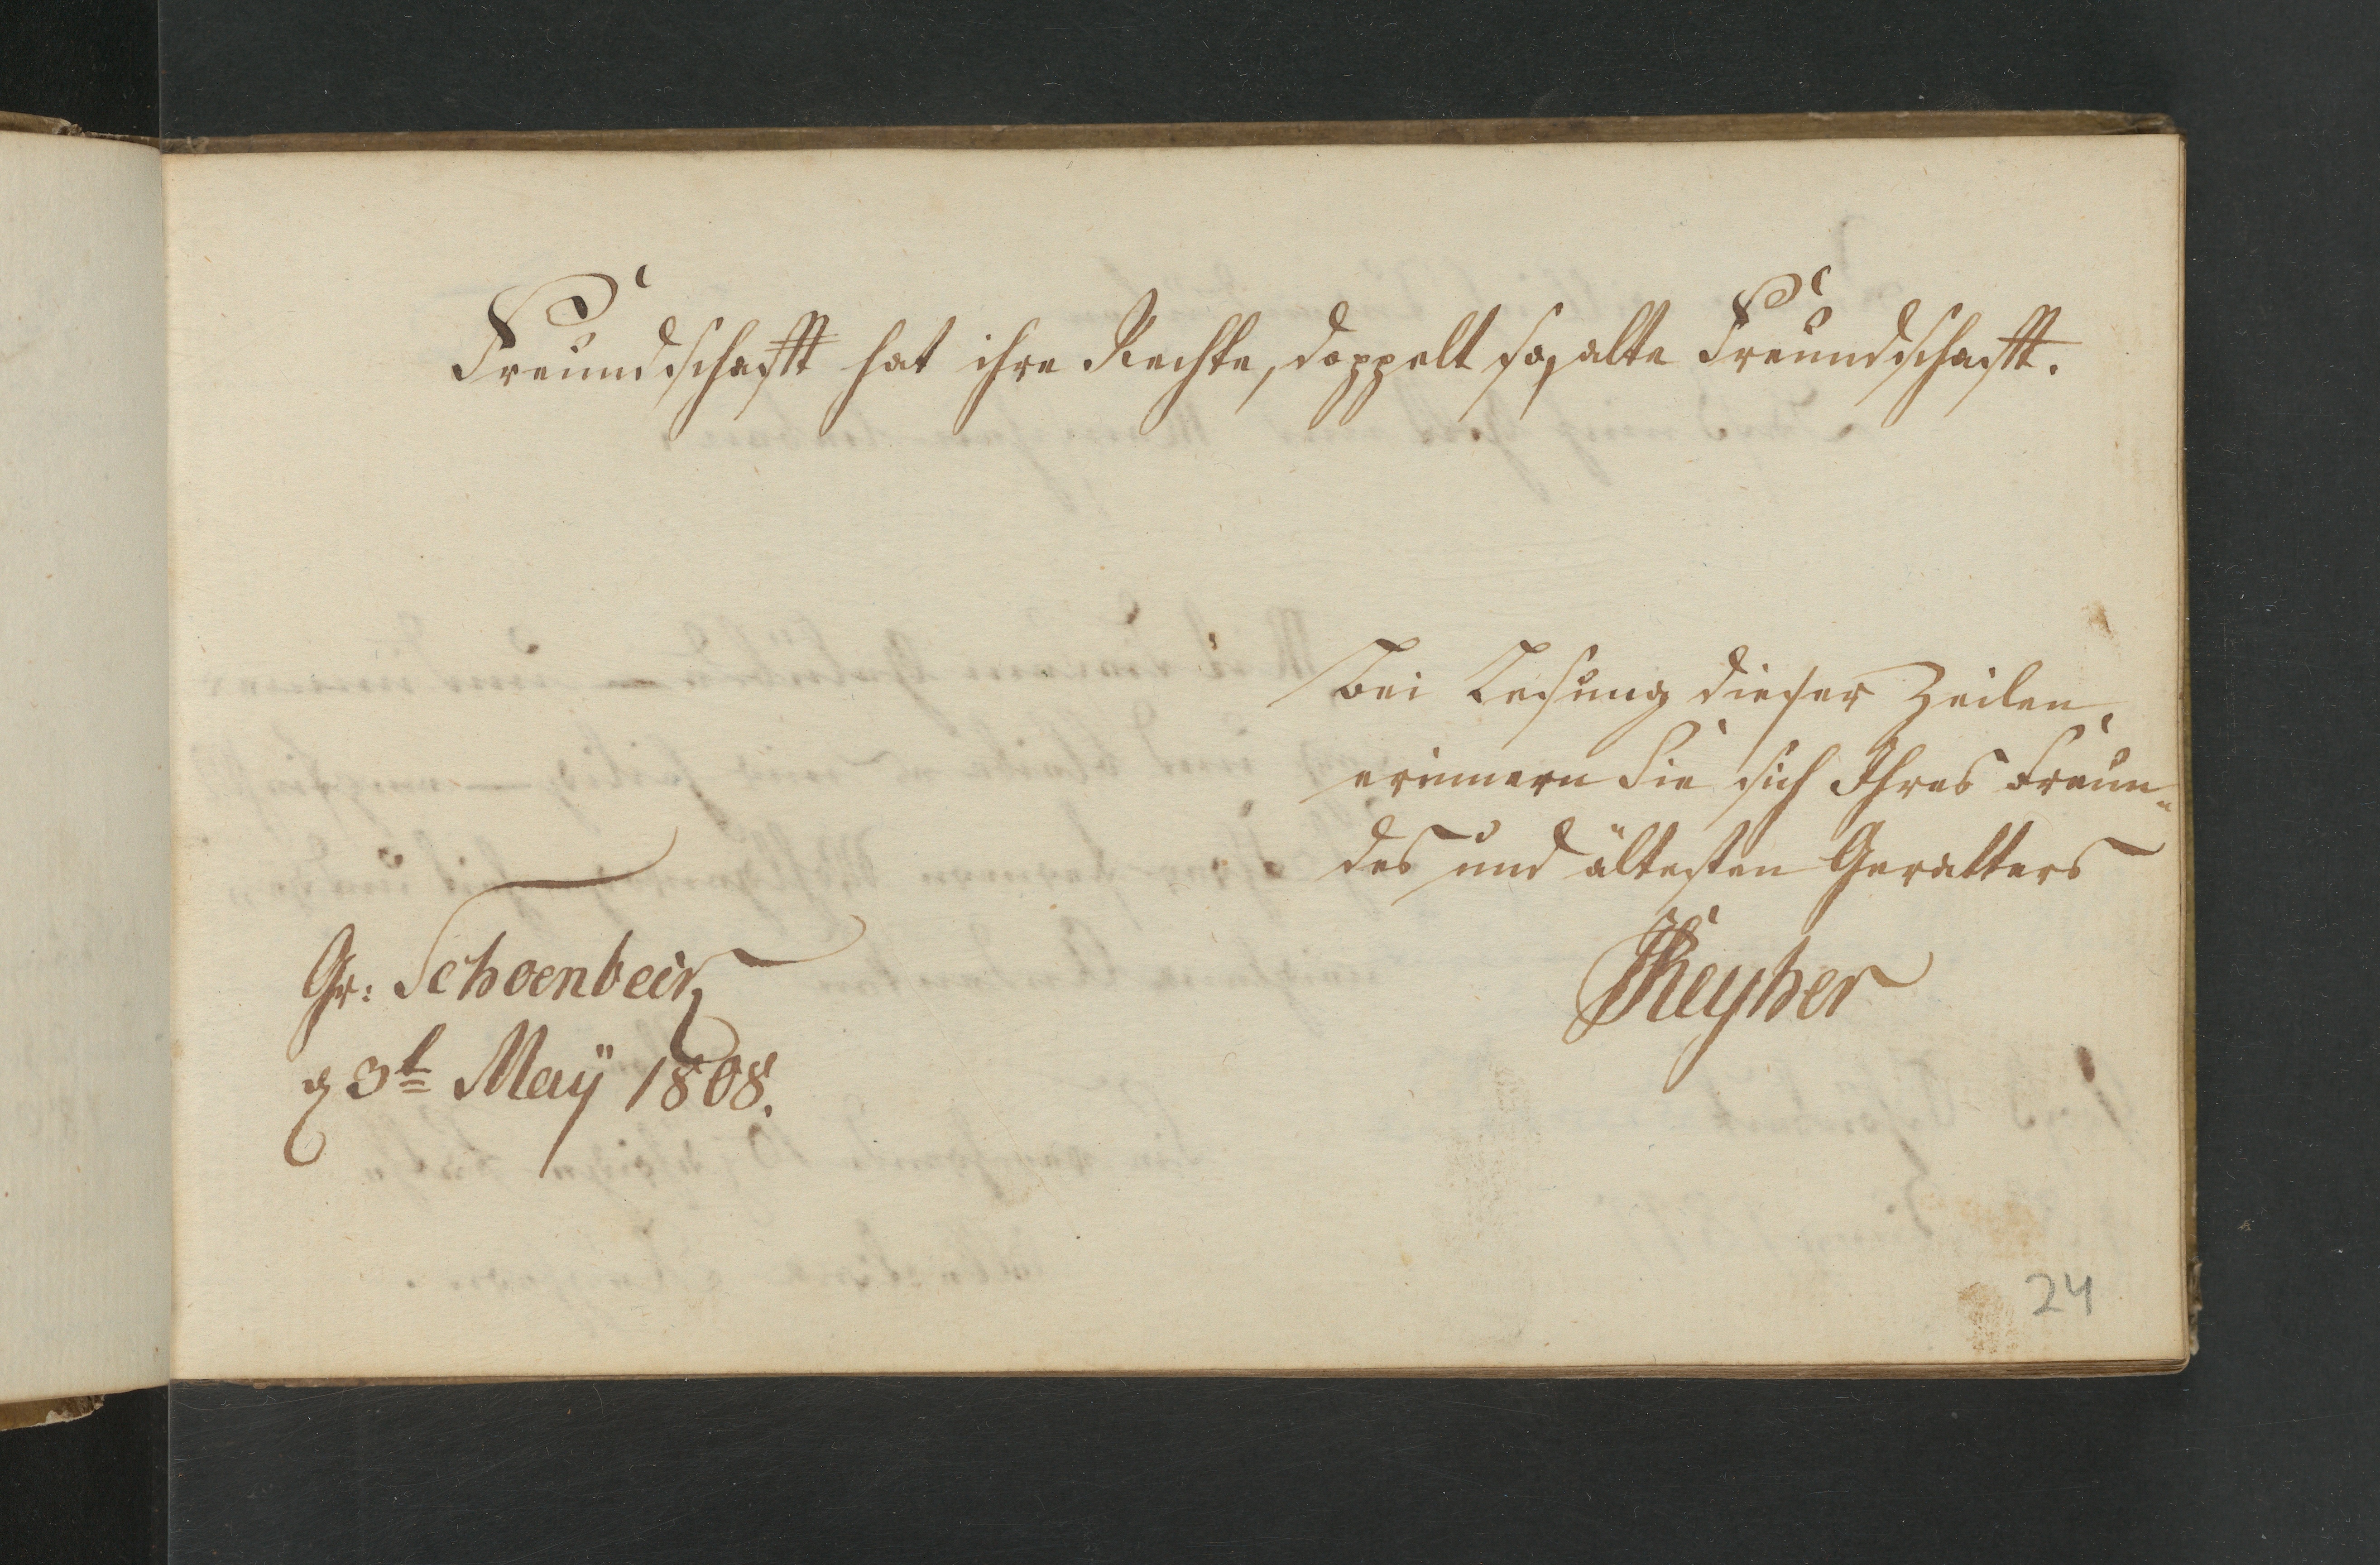 Freundschafft hat ihre Rechte, doppelt so, alte Freundschafft.
Bei Lesung dieser Zeilen,
erinnern Sie sich Ihres Freun-
des und ältesten Gevatters
Reyher
Gr: Schoenbein
d 3t May 1808.
24